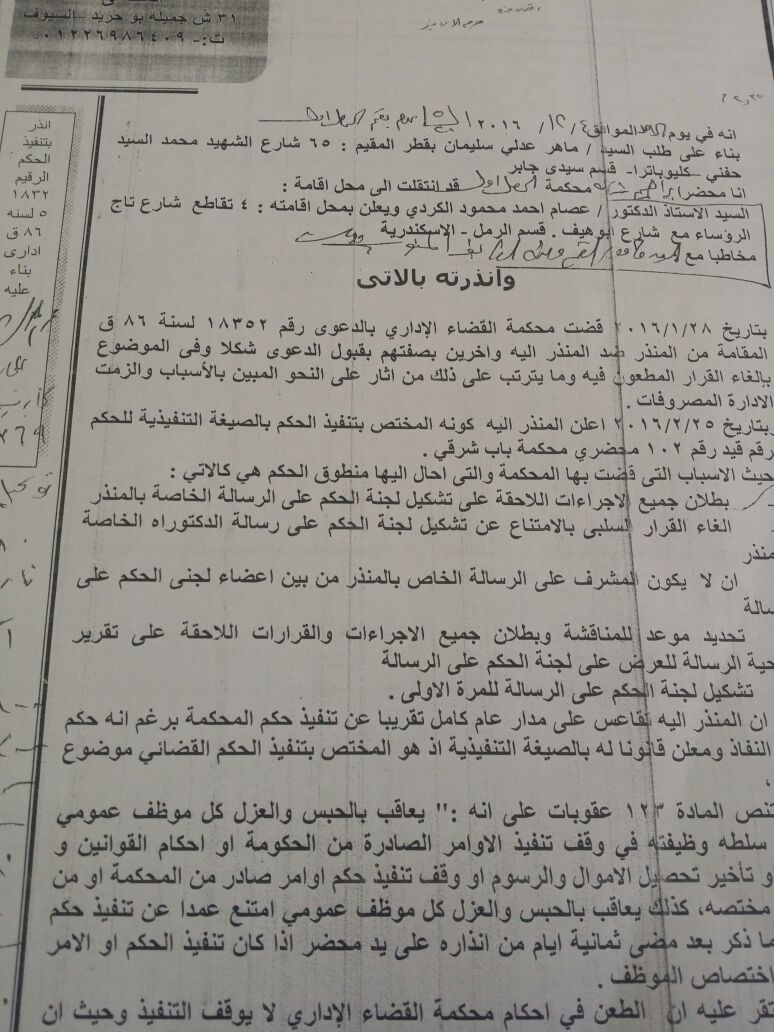 ٣١ ش جميله بو حريد - السيوف
ت: - ٠١٢٢٦٩٨٦٤٠٩
انه في يوم الموافق ٤ / ١٢ / ٢٠١٦
بناء على طلب السيد / ماهر عدلي سليمان بقطر المقيم : ٦٥ شارع الشهيد محمد السيد
حفني - كليوباترا - قسم سيدى جابر
انا محضر محكمة قد انتقلت الى محل اقامة :
السيد الاستاذ الدكتور / عصام احمد محمود الكردي ويعلن بمحل اقامته : ٤ تقاطع شارع تاج
الرؤساء مع شارع ابوهيف . قسم الرمل - الاسكندرية
مخاطبا مع
وانذرته بالاتى
بتاريخ ٢٠١٦/١/٢٨ قضت محكمة القضاء الإداري بالدعوى رقم ١٨٣٥٢ لسنة ٨٦ ق
المقامة من المنذر ضد المنذر اليه واخرين بصفتهم بقبول الدعوى شكلا وفى الموضوع
بإلغاء القرار المطعون فيه وما يترتب على ذلك من اثار على النحو المبين بالأسباب والزمت
الادارة المصروفات .
وبتاريخ ٢٠١٦/٢/٢٥ اعلن المنذر اليه كونه المختص بتنفيذ الحكم بالصيغة التنفيذية للحكم
رقم قيد رقم ١٠٢ محضري محكمة باب شرقي .
حيث الاسباب التى قضت بها المحكمة والتى احال اليها منطوق الحكم هي كالاتي :
بطلان جميع الاجراءات اللاحقة على تشكيل لجنة الحكم على الرسالة الخاصة بالمنذر
الغاء القرار السلبى بالامتناع عن تشكيل لجنة الحكم على رسالة الدكتوراه الخاصة
منذر
ان لا يكون المشرف على الرسالة الخاص بالمنذر من بين اعضاء لجنى الحكم على
سالة
تحديد موعد للمناقشة وبطلان جميع الاجراءات والقرارات اللاحقة على تقرير
حية الرسالة للعرض على لجنة الحكم على الرسالة
تشكيل لجنة الحكم على الرسالة للمرة الاولى .
ان المنذر اليه تقاعس على مدار عام كامل تقريبا عن تنفيذ حكم المحكمة برغم انه حكم
النفاذ ومعلن قانونا له بالصيغة التنفيذية اذ هو المختص بتنفيذ الحكم القضائي موضوع
،
تنص المادة ١٢٣ عقوبات على انه :" يعاقب بالحبس والعزل كل موظف عمومي
سلطه وظيفته في وقف تنفيذ الاوامر الصادرة من الحكومة او احكام القوانين و
و تأخير تحصيل الاموال والرسوم او وقف تنفيذ حكم اوامر صادر من المحكمة او من
مختصه، كذلك يعاقب بالحبس والعزل كل موظف عمومي امتنع عمدا عن تنفيذ حكم
ما ذكر بعد مضى ثمانية ايام من انذاره على يد محضر اذا كان تنفيذ الحكم او الامر
اختصاص الموظف .
تقر عليه ان الطعن في احكام محكمة القضاء الإداري لا يوقف التنفيذ وحيث ان
انذر
بتنفيذ
الحكم
الرقيم
١٨٣٢
٥ لسنه
٨٦ ق
ادارى
بناء
عليه